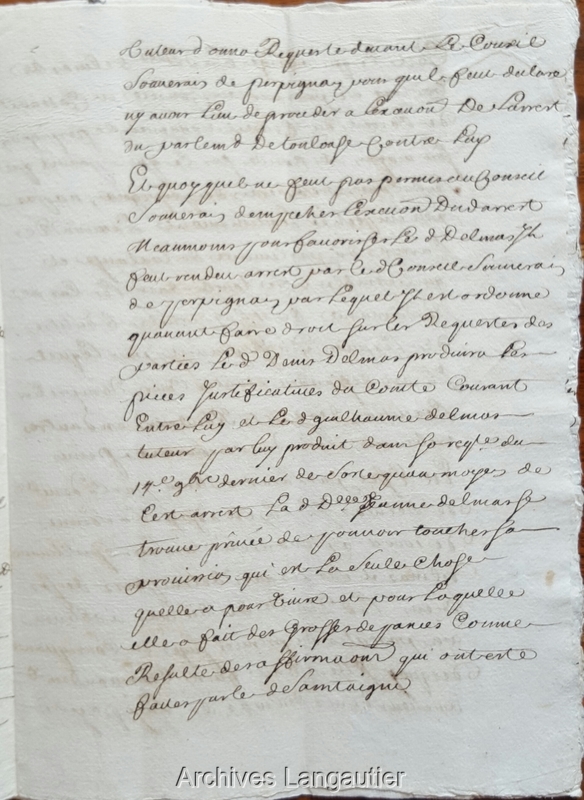 tuteur donna Requeste devant Le Conseil
Souverain de perpignan pour quil feut declare
ny avoir lieu de proceder a Lexecuōn De Larrest
du parlemt De toulouse Contre Luy
Et quoy quil ne feut pas permis au Conseil
Souverain dempecher Lexecuōn Dud arrest
Neaumoins pour favoriser Le d Delmas Il
feut rendeu arrest par le d Conseil Souverain
de perpignan par Lequel Il est ordonne
quavant faire droit sur les Requestes des
parties Le d Denis Delmas produira Les
pieces Justificatives du Comte Courant
Entre Luy et Le d guilhaume delmas
tuteur par luy produit dans sa reqte du
14e 9bre dernier de sorte quau moyen de
Cest arrest La d Dlle Jeanne delmas se
trouve privée de pouvoir toucher sa
provision qui est La Seule Chose
quelle a pour vivre et pour Laquelle
elle a fait des Grosses depances Comme
Resulte des affirmaōns qui ont este
faites par le d Saintaigne
Archives Langautier